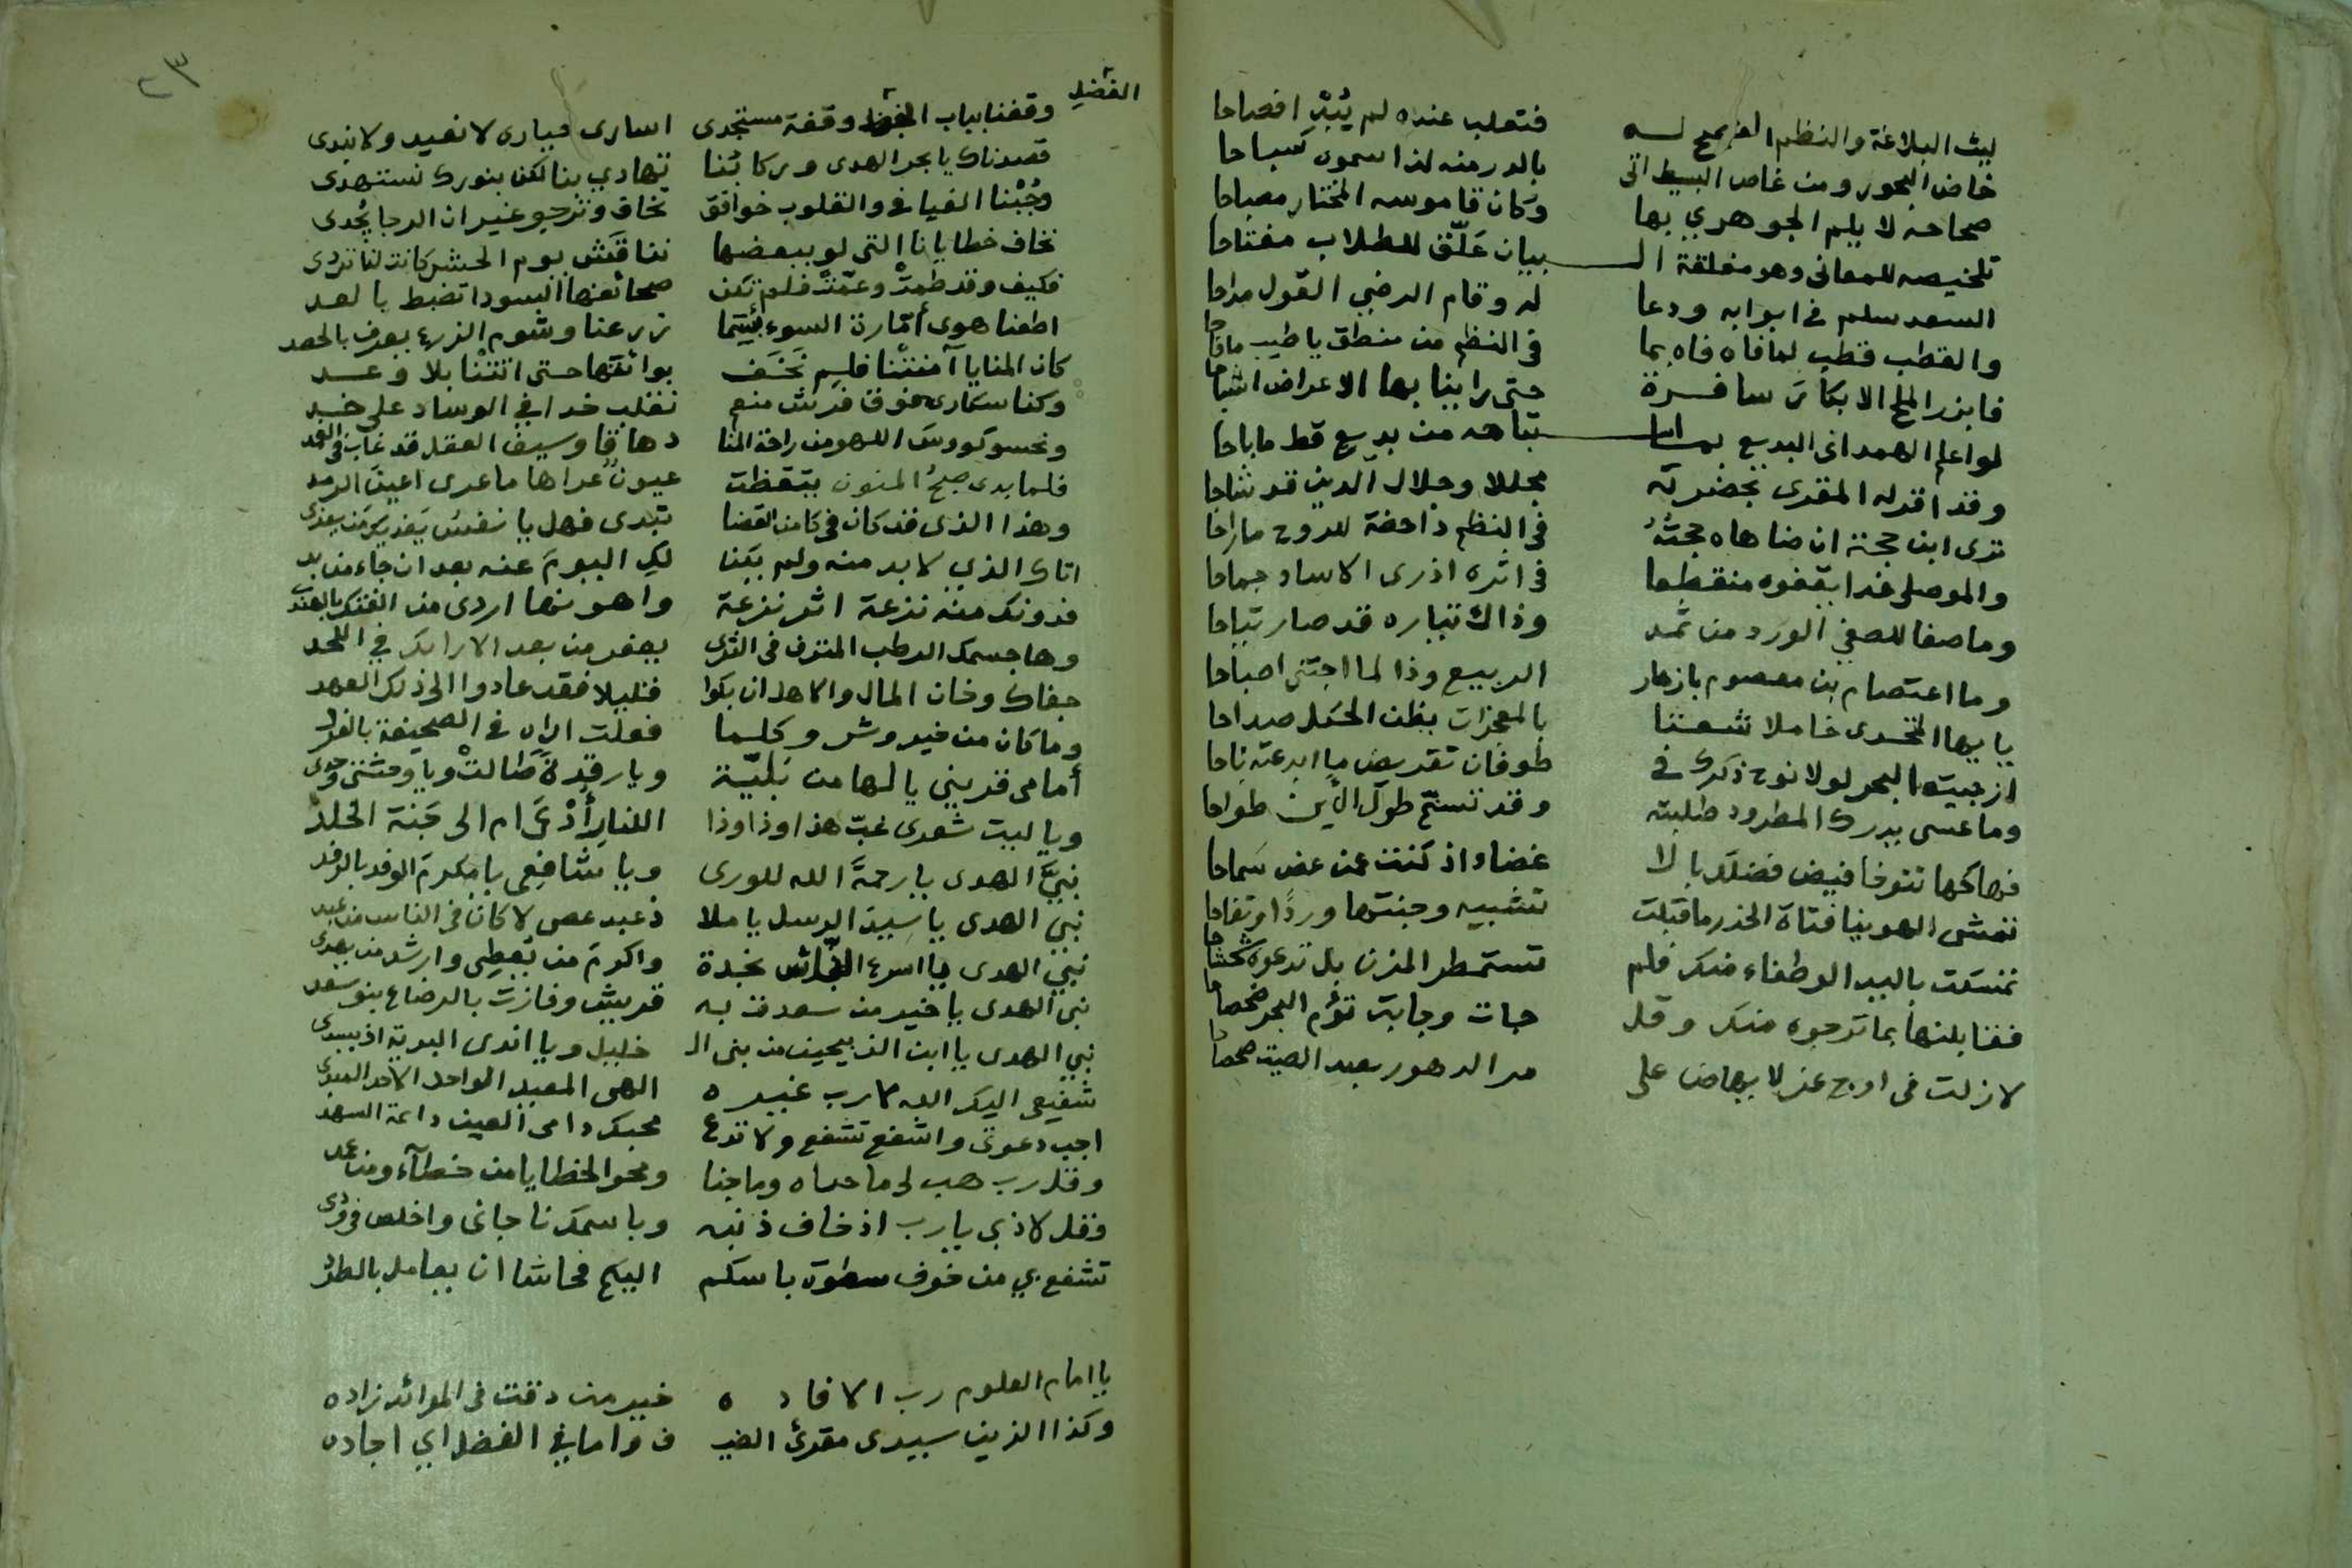 ليث البلاغة والنظم الفصيح له فتعلب عنده لم يُبْدِ افصاحا
خاض البحور ومن غاص البسيط اتى بالدر منه لذا سموه سباحا
صحاحه لا يلم الجوهري بها وكان قاموسه المختار مصباحا
تلخيصه للمعانى وهو مغلقة الـ ـبيان عَلّق للطلاب مفتاحا
السعد سلم فى ابوابه ودعا له وقام الرضي القول مداحا
والقطب قطب لما فاه فاه بما فى النظم من منطق يا طيب ما فاحا
فابرز الملح الابكار سافرة حتى راينا بها الاعراض اشباحا
لو اعلم الهمدانى البديع بها تباهه من بديع قط ما باحا
وقد اقر له المقرى بحضرته مجللا وجلال الدين قد شاحا
ترى ابن حجة ان ضاهاه حجته فى النظم داحضة للروح ما راحا
والموصلى غدا يقفوه منقطعا فى اثره اذ رى الاساد جماحا
وما صفا للصفي الورد من ثمد وذاك تياره قد صار تياحا
وما اعتصام بن معصوم بازهار الربيع وذا لما اجتنى اصباحا
يا يها المتحدى خاملا شعثا بالمعجزات بظن الخل صداحا
ازجيت البحر لولا نوح ذكرك فى طوفان تقريض ما ابدعته ناحا
وما عسى يدرك المطرود طلبته وقد تسنم طول الأين طواحا
فهاكها تتوخا فيض فضلك بالا غضاء اذ كنت عن عض سماحا
تمشى الهوينا فتاة الخدر ما قبلت تشبيه وجنتها وردًا وتفاحا
تمسكت بالبيد الوطفاء منك فلم تستمطر المزن بل تدعوه شحاحا
فقابلنها بما ترجوه منك وقل جات وجابت تؤم البحر ضحضاحا
لازلت فى اوج عز لا يهاض على مر الدهور بعيد الصيت صحاحا
٢٣
الفضل
وقفنا بباب الفضل وقفة مستجدى اسارى حيارى لا نعيد ولا نبدى
قصدناك يا بحر الهدى وركائبنا تهادي بنا لكن بنورك نستهدى
وجُبْنا الفيافى والقلوب خوافق نخاف ونرجو غير ان الرجا يجدى
نخاف خطايانا التى لو ببعضها نناقَش يوم الحشر كانت لنا تردى
فكيف وقد طمتْ وعمّتْ فلم تكن صحائفنا السودا تضبط بالعد
اطعنا هوى أمّارة السوء بئيتما زرعنا وشوم الزرع يعرف بالحصد
كان المنايا آمنتْنا فلم نَخَف بوائقها حتى اتتْنا بلا وعد
وكنا سكارى فوق فرش منعم نقلب خدا في الوساد على خد
ونحسو كووسَ اللهو من راحة المنا دهاقا وسيف العقل قد غاب فى الغمد
فلما بدى صبح المنون تيقظت عيون عراها ما عرى اعينَ الرمد
وهذا الذى قد كان فى كامن القضا تبدى فهل يا نفس يَفديكِ من يفدى
اتاك الذي لا بد منه ولم يكنا لكِ اليومَ عنه بعد ان جاء من بد
فدونك منه نزعة اثر نزعة واهونها اردى من الفتك بالهند
وها جسمك الرطب المترف فى الثرى يعفر من بعد الارائك في اللحد
جفاك وخان المال والاهل ان بكوا قليلا فقد عادوا الى ذلك العهد
وما كان من خير وشر وكلما فعلت اراه فى الصحيفة بالفرد
أمامى قريني يا لها من بَليّة ويا رقدةً طالتْ ويا وحشتى وحدى
ويا ليت شعرى غبّ هذا وذا وذا اللنار أُدْعَى ام الى جَنة الخلد
نبيَّ الهدى يا رحمةَ الله للورى ويا شافِعى يا مكرمَ الوفد بالرفد
نبي الهدى يا سيد الرسل يا ملا ذ عبد عصى لا كان فى الناس من عبد
نبي الهدى يا اسرع الناس نجدة واكرمَ من يُعطِى وارشد من يهدى
نبي الهدى يا خير من سعدت به قريش وفازت بالرضاع بنو سعد
نبي الهدى يا ابن الذبيحين من بنى الـ خليل ويا اندى البرية اذ يسدى
شفيعى اليك الله لا رب غيره الهى المعيد الواحد الاحد المبدى
اجب دعوتى واشفع تشفع ولا تدع محبك دامى العين دائمة السهد
وقل رب هب لى ما حساه وما جنا ومحو الخطايا من خطآء ومن عمد
فقل لاذ بى يا رب اذ خاف ذنبه وباسمك ناجانى واخلص فى ودى
تشفع بي من خوف سطوة باسكم اليكم فحاشا ان يعامل بالطرد
يا امام العلوم رب الافاده خير من دقت فى الموائد زاده
وكذا الزين سيدى مقرئ الضيـ ف واما في الفضل اي اجاده